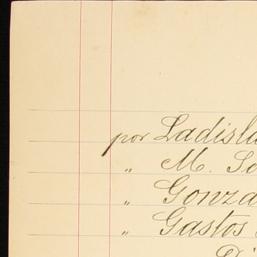 por Ladisla
" M. So
" Gonza
" Gastos